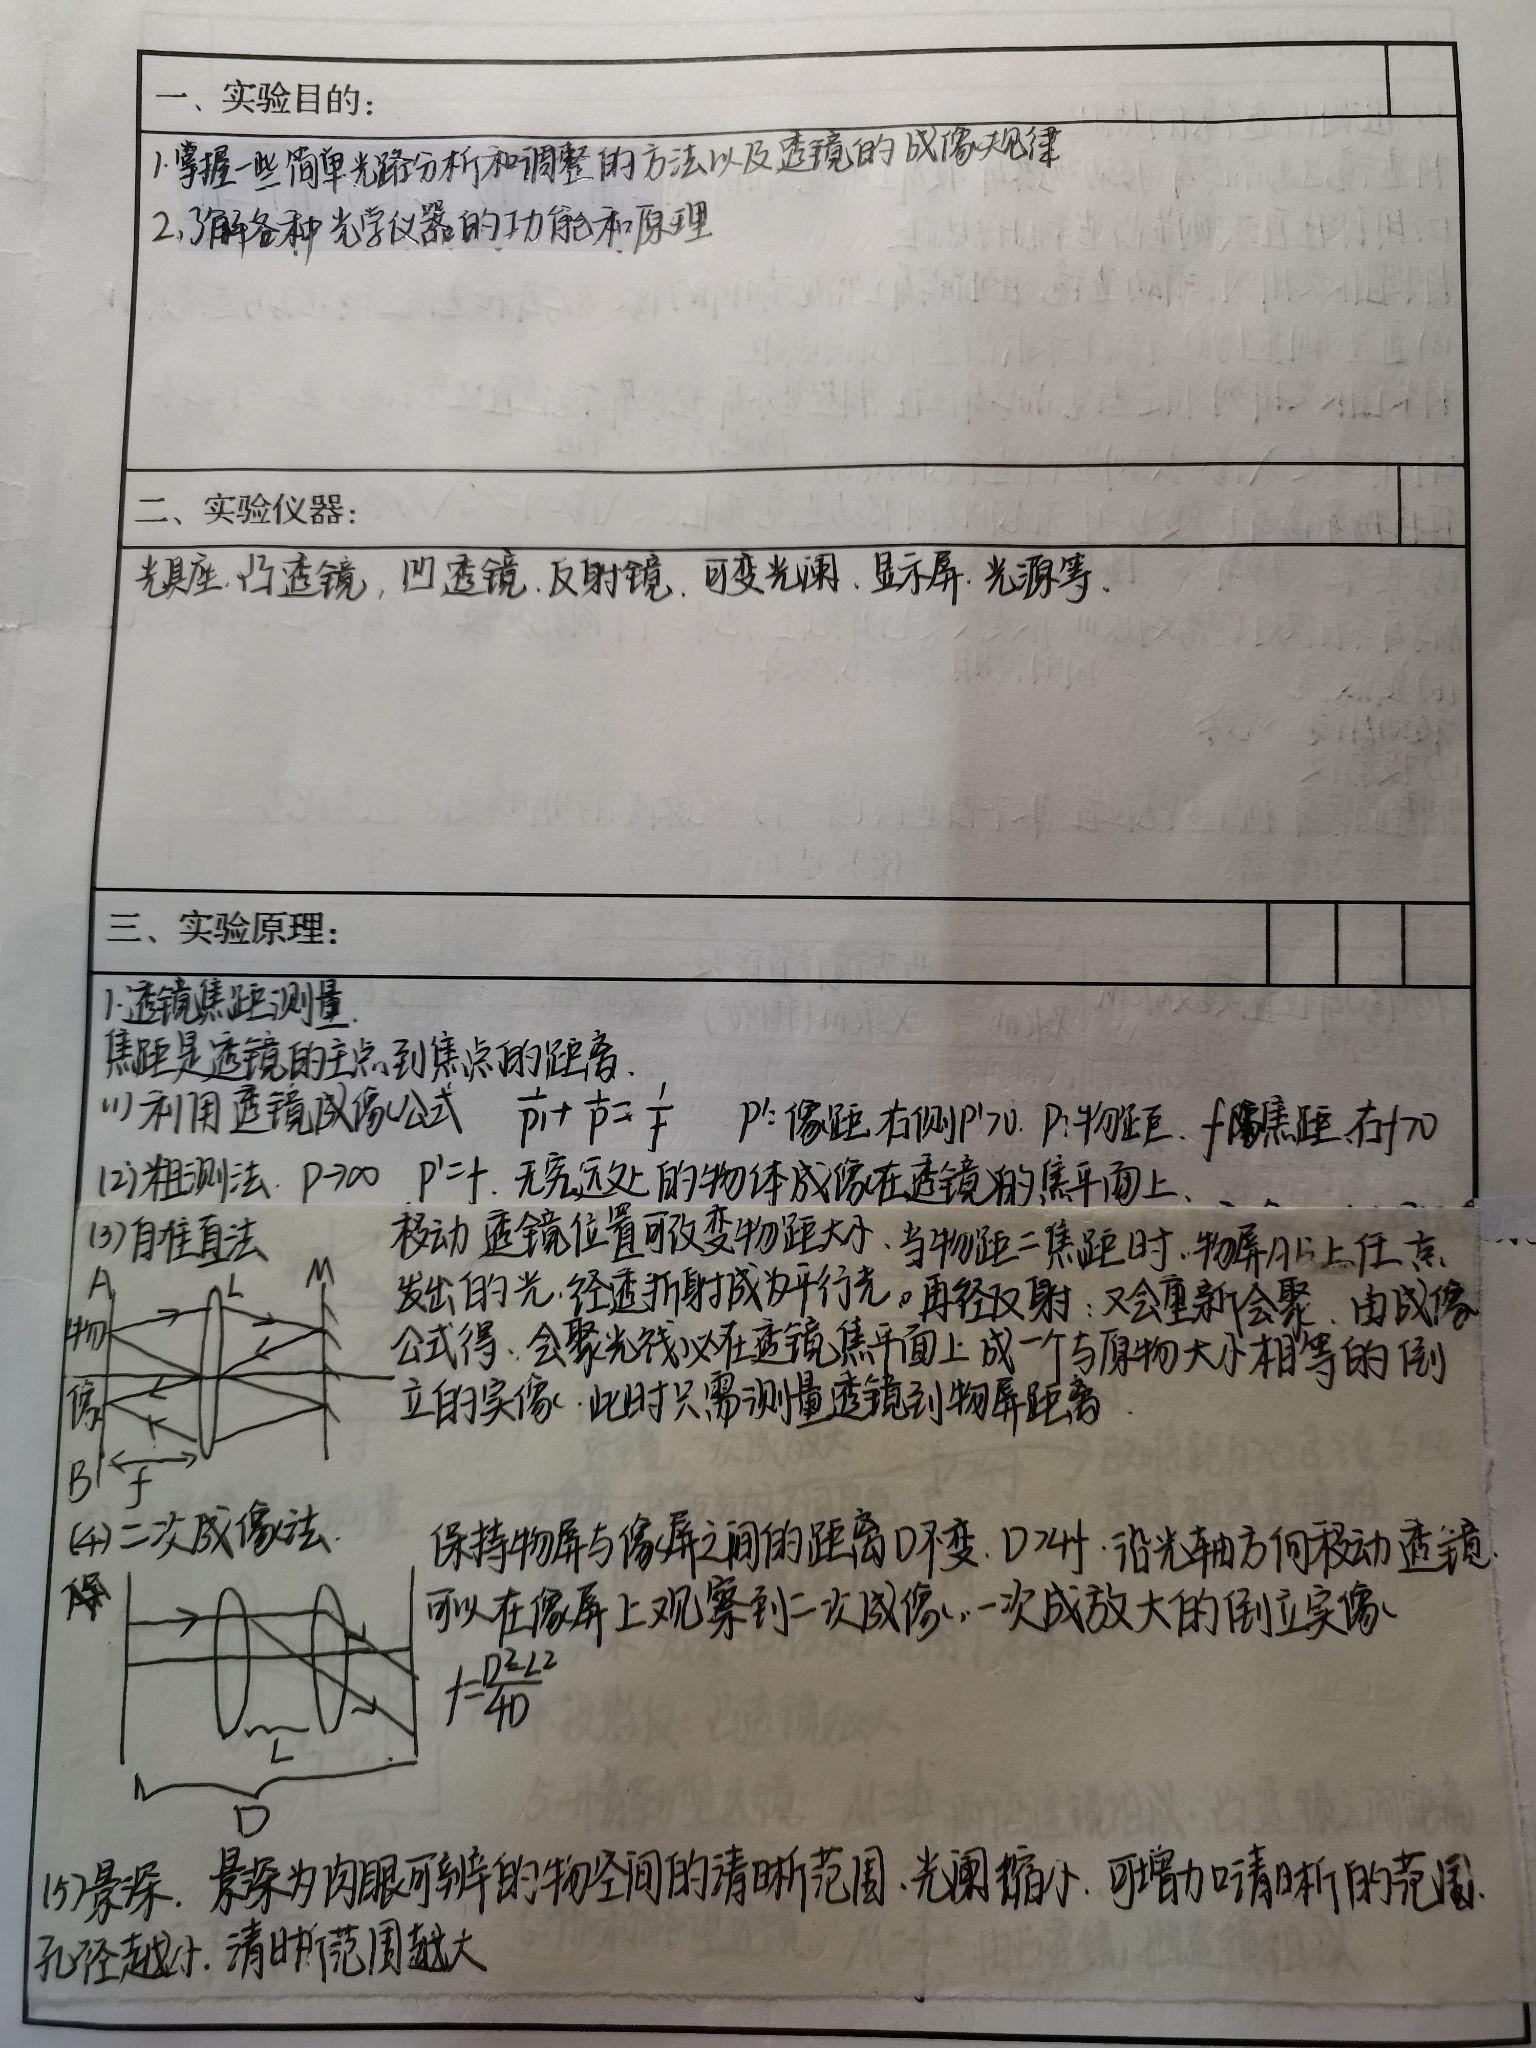 一、实验目的:
1.掌握一些简单光路分析和调整的方法以及透镜的成像规律
2.了解各种光学仪器的功能和原理
二、实验仪器:
光具座.凸透镜,凹透镜.反射镜.可变光阑.显示屏.光源等.
三、实验原理:
1.透镜焦距测量.
焦距是透镜的主点到焦点的距离.
(1)利用透镜成像公式 1/p'+1/p=1/f p':像距.右侧p'>0. p:物距. f 焦距.右f>0
(2)粗测法. p→∞ p'=f. 无穷远处的物体成像在透镜的焦平面上.
(3)自准直法 移动透镜位置可改变物距大小.当物距=焦距时.物屏AB上任点
发出的光.经透折射成为平行光。再经反射:又会重新会聚.由成像
公式得.会聚光线必在透镜焦平面上成一个与原物大小相等的倒
立的实像.此时只需测量透镜到物屏距离.
A L M
物
像
B f
(4)二次成像法. 保持物屏与像屏之间的距离D不变.D>4f.沿光轴方向移动透镜.
可以在像屏上观察到二次成像.一次成放大的倒立实像
f=D²-L²/4D
L
D
(5)景深. 景深为肉眼可辨的物空间的清晰范围.光阑缩小.可增加清晰的范围.
孔径越小.清晰范围越大